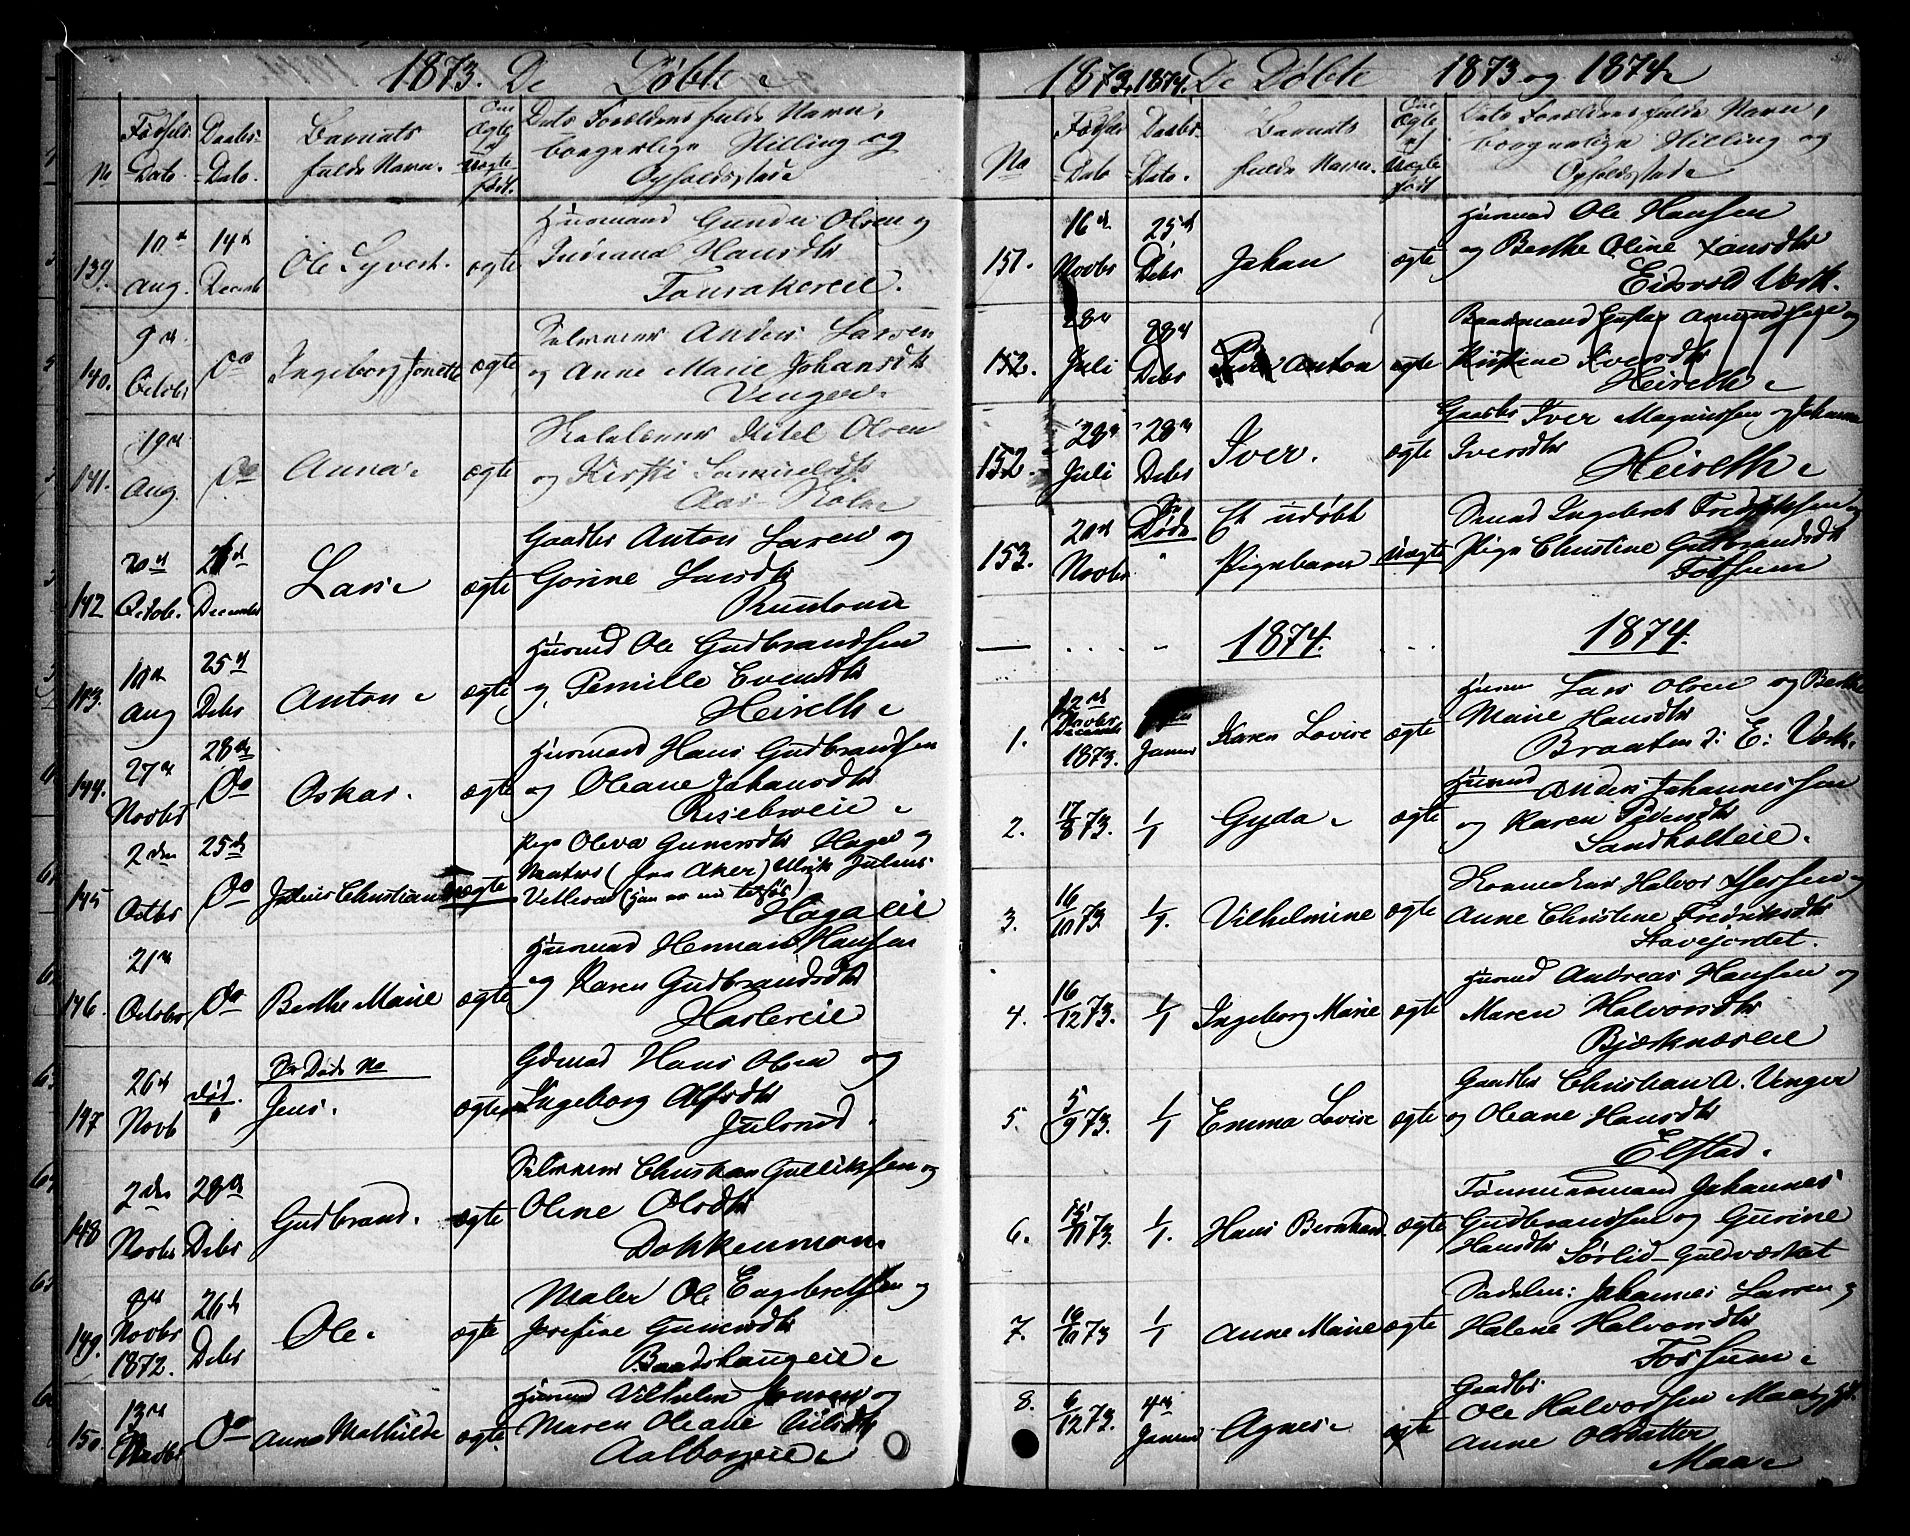 1873. De Døbte
No
Fødsels-Dato
Daabs-Dato.
Barnets fulde Navn.
Om Ægte el. Uægte født.
Dets Forældres fulde Navn, borgerlige Stilling og Opholdsstæd
139. 10de Aug. 14d Decemb Ole Syvert. ægte Huusmand Gunder Olsen og
Hansdtr
140. 9d Octobr Do Ingeborg Jonette ægte Anders Larsen
og Anne Marie Johansdtr
Vinger
141. 19d Aug Do Anna ægte Ketel Olsen
og Kirsti Samuelsdtr
142 20d Octob. 26d December Lars ægte Gaadbr Anton Larsen og
Gorine Larsdtr
143. 10d Aug 25d Debr Anton ægte Huusmd Ole Gudbrandsen
og Pernille Evensdtr
Heireth
144. 27d Novbr 28de Do Oskar. ægte Huusmand Hans Gudbrandsen
og Oleane Johansdtr
Risebroeie
145 2den Octbr 25d Do Julius Christian uægte Pige Oleva Gunersdtr Hagaeie og
(fra Aker) Ulrik Julius
Hagaeie
146. 21d Octobr Do Berthe Marie ægte Huusmd Herman Hansen
og Karen Gudbrandsdtr
Haslereie
147 26d Novb død. " Se Døde No
Jens. ægte Gdmd Hans Olsen og
Ingeborg Alfsdtr
Julsrud.
148 2den Novbr 28d Debr Gudbrand. ægte Christian Gulliksen og
Oline Olsdtr
Dokkenmoen
149. Novbr 1872. 26d Debr Ole ægte Maler Ole Engebretsen og
Josefine Gunersdtr
Baadshaugeie
150. 13d Do Anna Mathilde ægte Huusmd Vilhelm Jensen og
Maren Oleane
Aalborgeie
1873. 1874. De Døbte 1873 og 1874
No
Fødsels-Dato
Daabs-Dato.
Barnets fulde Navn.
Om Ægte el Uægte født
Dets Forældres fulde Navn, borgerlige Stilling og Opholdsstæd
151. 16d Novbr 25d Debr Johan ægte Huusmd Ole Hansen
og Berthe Oline Hansdtr
Eidsvold Værk.
152. 28d Juli 28d Debr Anton ægte Baadsmand Gustav Amundsen og
Kristine Iversdtr
Heireth
152. 28d Juli 28d Debr Iver. ægte Gaadbr Iver Magnussen og Johanne
Iversdtr
Heireth
153. 20d Novbr Se Døde " Et udøbt
Pigebarn uægte Smed Ingebret Fredriksen og
Pige Christine Gulbrandsdtr
Fossum
1874. 1874.
1. 22d Novbr 1873. Januar Karen Lovise ægte Huusm Lars Olsen og Berthe
Marie Hansdtr
Braaten v: E: Værk.
2. 17/8 73. 1/1 Gyda ægte Huusmd Anders Johannessen
og Karen Pedersdtr
Sandholteie.
3. 16/10 73. 1/1. Vilhelmine ægte Halvor
Anne Christine Fredriksdtr
Stavejordet.
4. 16/12 73. 1/1 Ingeborg Marie ægte Huusmd Andreas Hansen og
Maren Halvorsdtr
Bjerknæseie
5. 5/9 73. 1/1 Emma Lovise ægte Gaadbr Christian A. Vinger
og Oleane Hansdtr
Elstad.
6. /11 73. 1/1. Hans Bernhard ægte Tømmermand Johannes
Gudbrandsen og Gurine
Hansdtr Sørlid - Guldværket
7. 16/11 73 1/1 Anne Marie ægte Johannes Larsen og
Helene Halvorsdtr
Fossum
8. 6/12 73. 4d Januar Agnes ægte Gaadbr
Ole Halvorsen Maa og
Anne Olsdatter
Maa